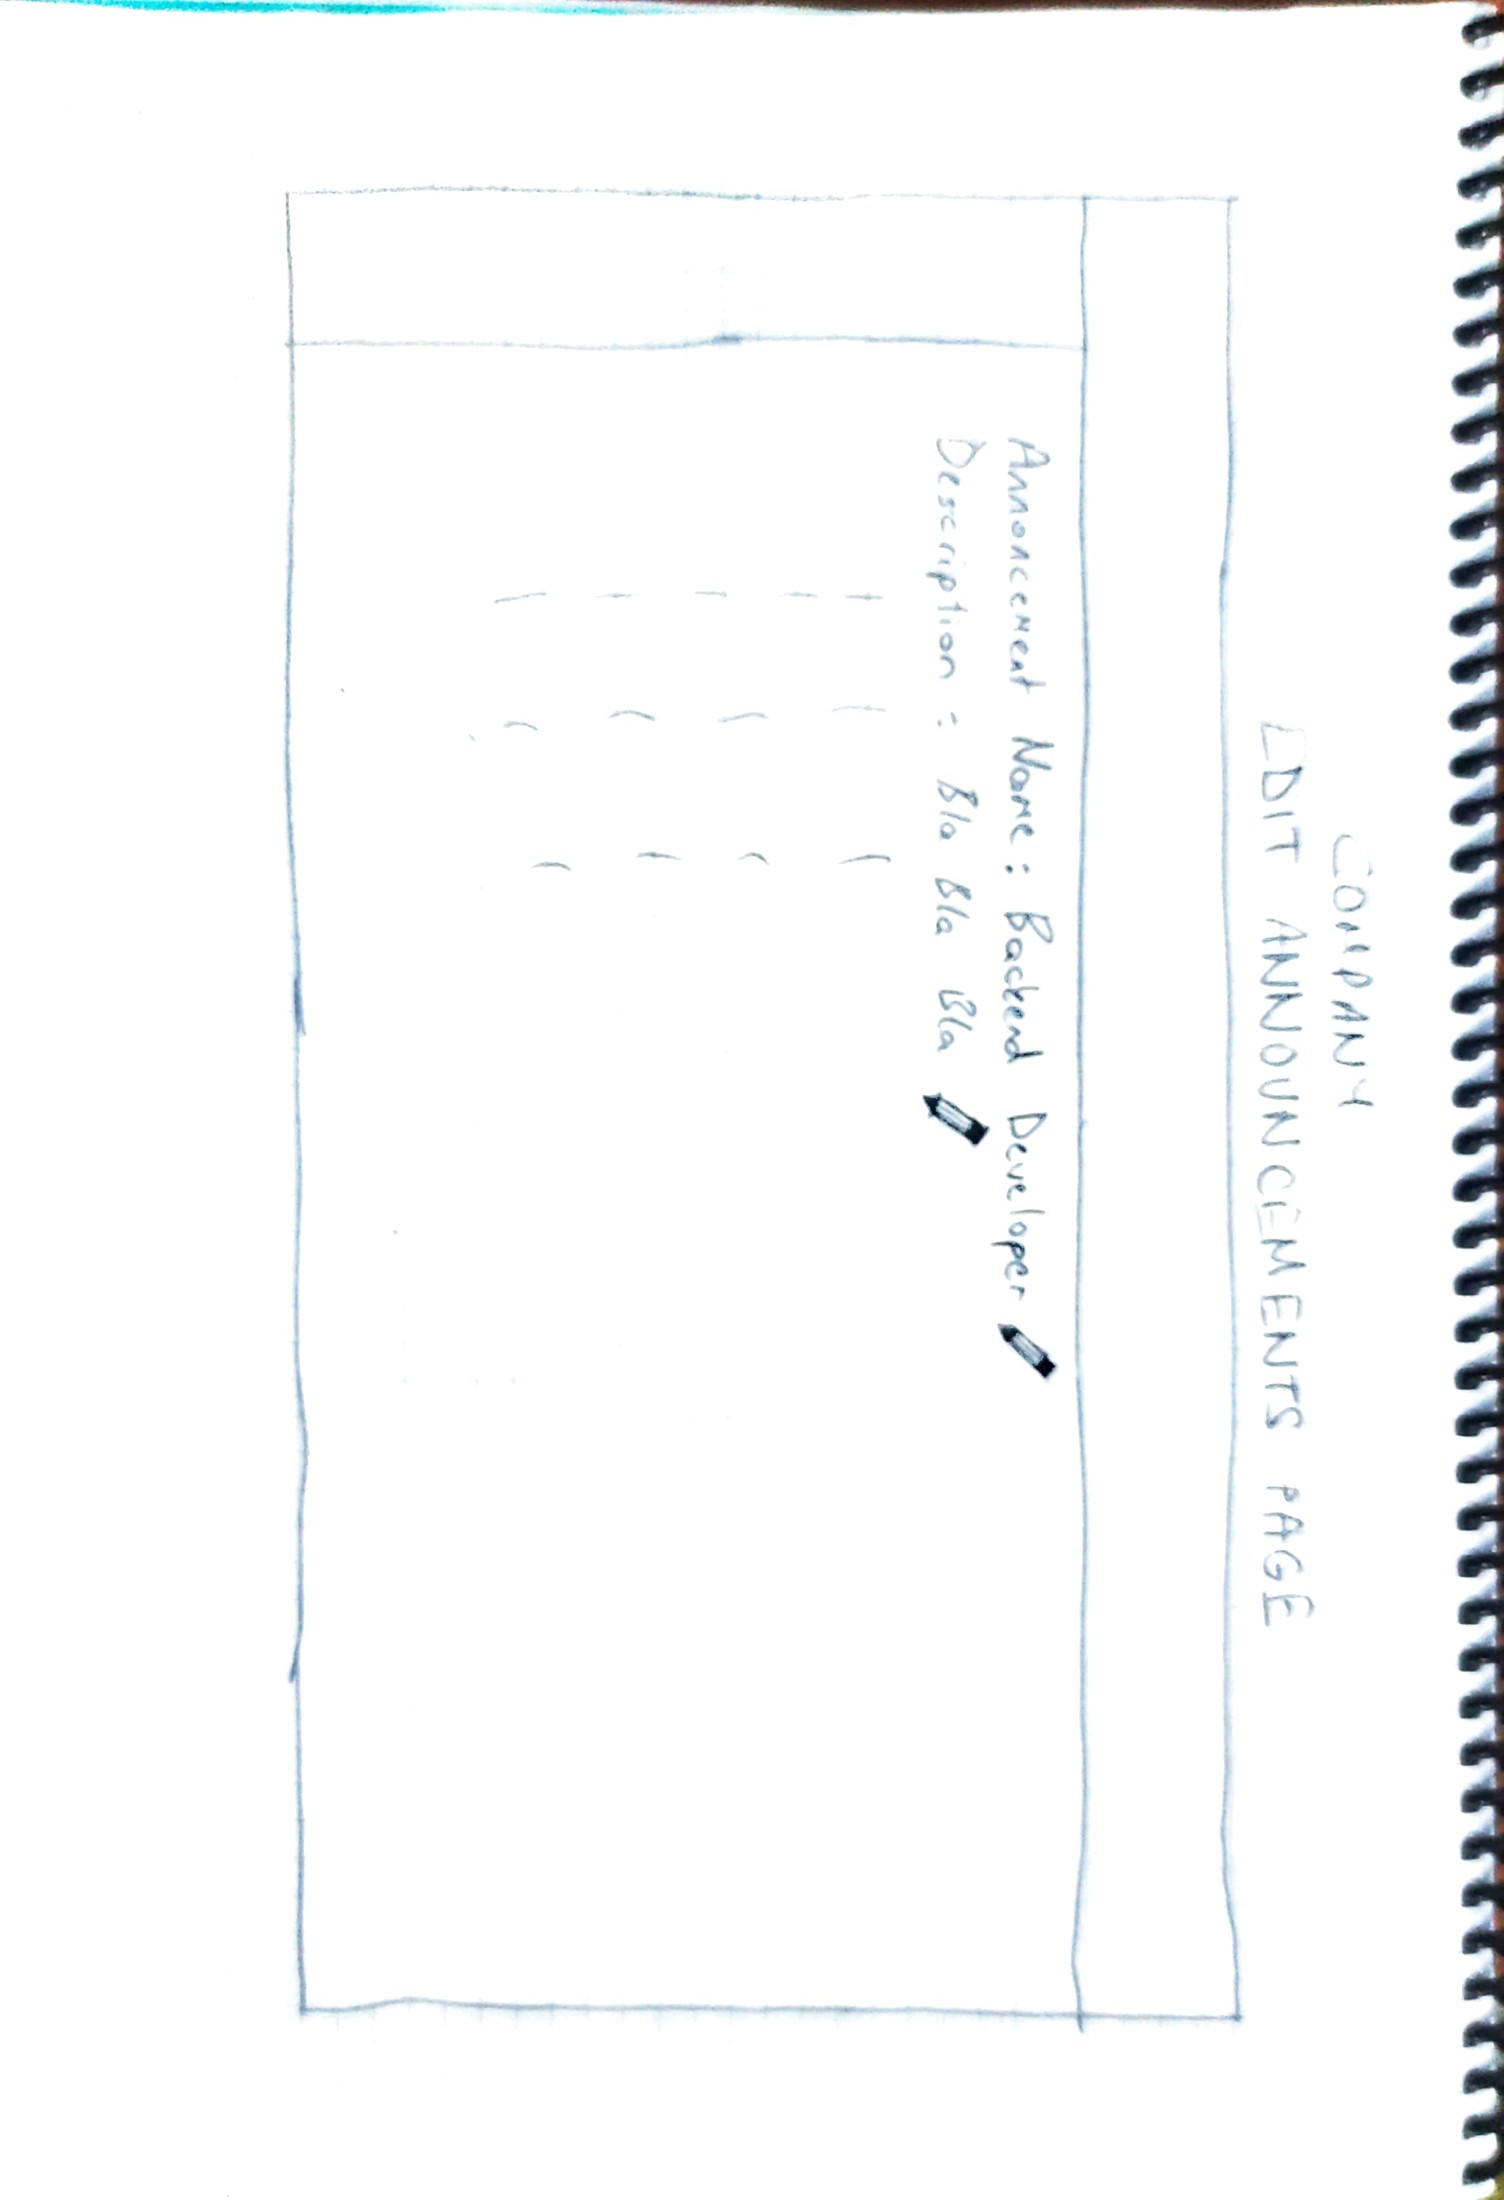 COMPANY
EDIT ANNOUNCEMENTS PAGE
Annoncement Name : Backend Developer
Description : Bla Bla Bla